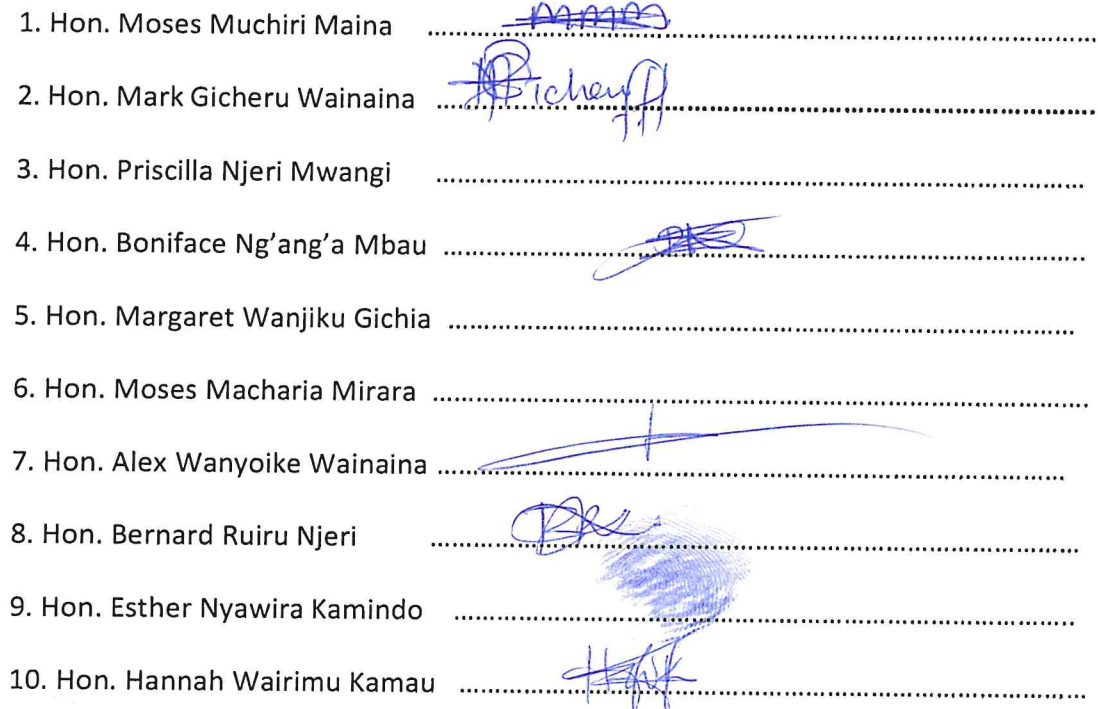 1. Hon. Moses Muchiri Maina ..........
2. Hon. Mark Gicheru Wainaina ..........
3. Hon. Priscilla Njeri Mwangi ..........
4. Hon. Boniface Ng'ang'a Mbau ..........
5. Hon. Margaret Wanjiku Gichia ..........
6. Hon. Moses Macharia Mirara ..........
7. Hon. Alex Wanyoike Wainaina ..........
8. Hon. Bernard Ruiru Njeri ..........
9. Hon. Esther Nyawira Kamindo ..........
10. Hon. Hannah Wairimu Kamau ..........